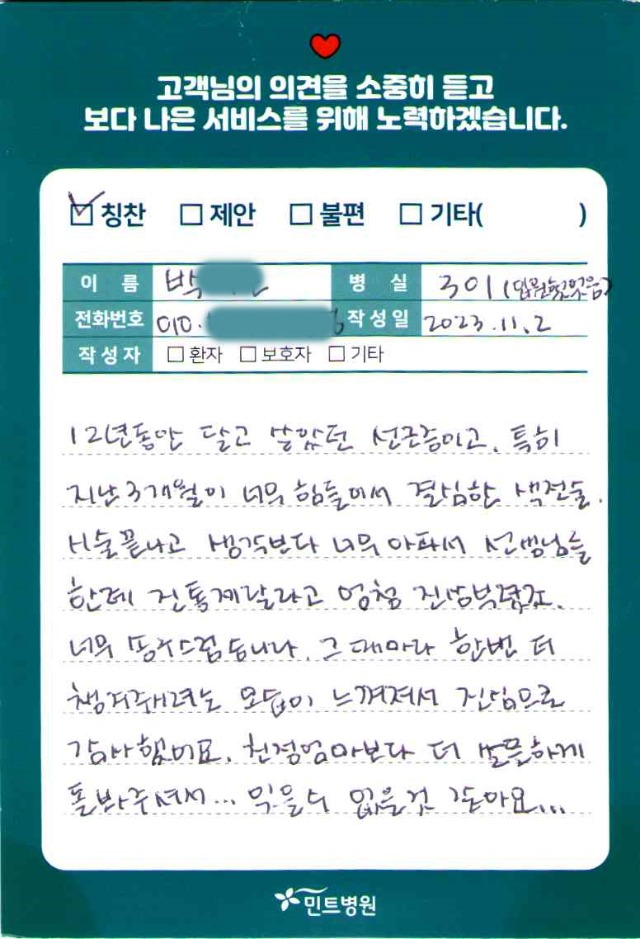 고객님의 의견을 소중히 듣고
보다 나은 서비스를 위해 노력하겠습니다.
칭찬 제안 불편 기타( )
이 름 박 병 실 301 (입원했었음)
전화번호 010. 작성일 2023.11.2
작성자 환자 보호자 기타
12년동안 달고 살았던 선근증이고, 특히
지난 3개월이 너무 힘들어서 결심한 색전술.
시술끝나고 생각보다 너무 아파서 선생님들
한테 진통제달라고 엄청 진상부렸죠.
너무 송구스럽습니다. 그 때마다 한번 더
챙겨주려는 모습이 느껴져서 진심으로
감사했어요. 친정엄마보다 더 살뜰하게
돌봐주셔서... 잊을수 없을것 같아요...
민트병원